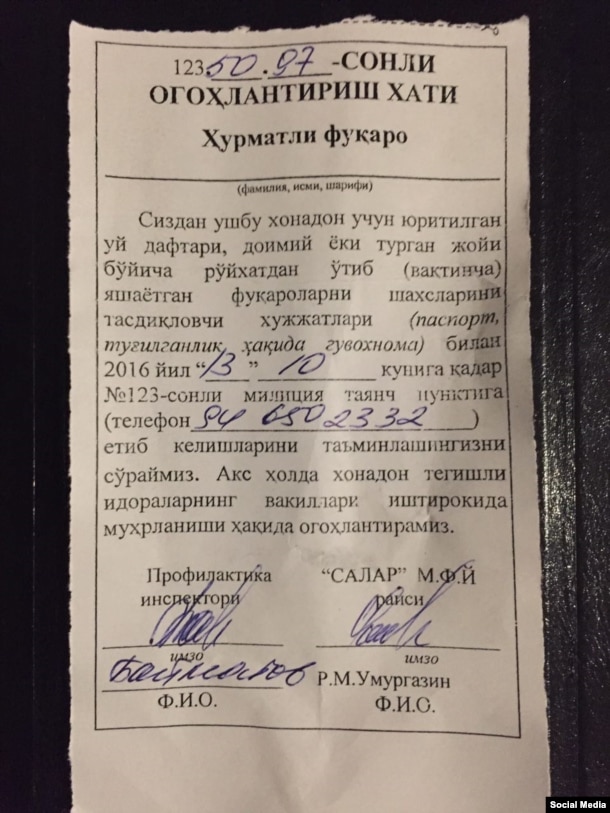 123 50.97 -СОНЛИ
ОГОҲЛАНТИРИШ ХАТИ
Ҳурматли фуқаро
(фамилия, исми, шарифи)
Сиздан ушбу хонадон учун юритилган
уй дафтари, доимий ёки турган жойи
бўйича рўйхатдан ўтиб (вақтинча)
яшаётган фуқароларни шахсларини
тасдиқловчи хужжатлари (паспорт,
туғилганлик ҳақида гувохнома) билан
2016 йил “13” 10 кунига қадар
№123-сонли милиция таянч пунктига
(телефон 94 650 2332)
етиб келишларини таъминлашингизни
сўраймиз. Акс ҳолда хонадон тегишли
идораларнинг вакиллари иштирокида
муҳрланиши ҳақида огоҳлантирамиз.
Профилактика “САЛАР” М.Ф.Й
инспектори раиси
имзо имзо
Байматов Р.М.Умургазин
Ф.И.О. Ф.И.О.
Social Media